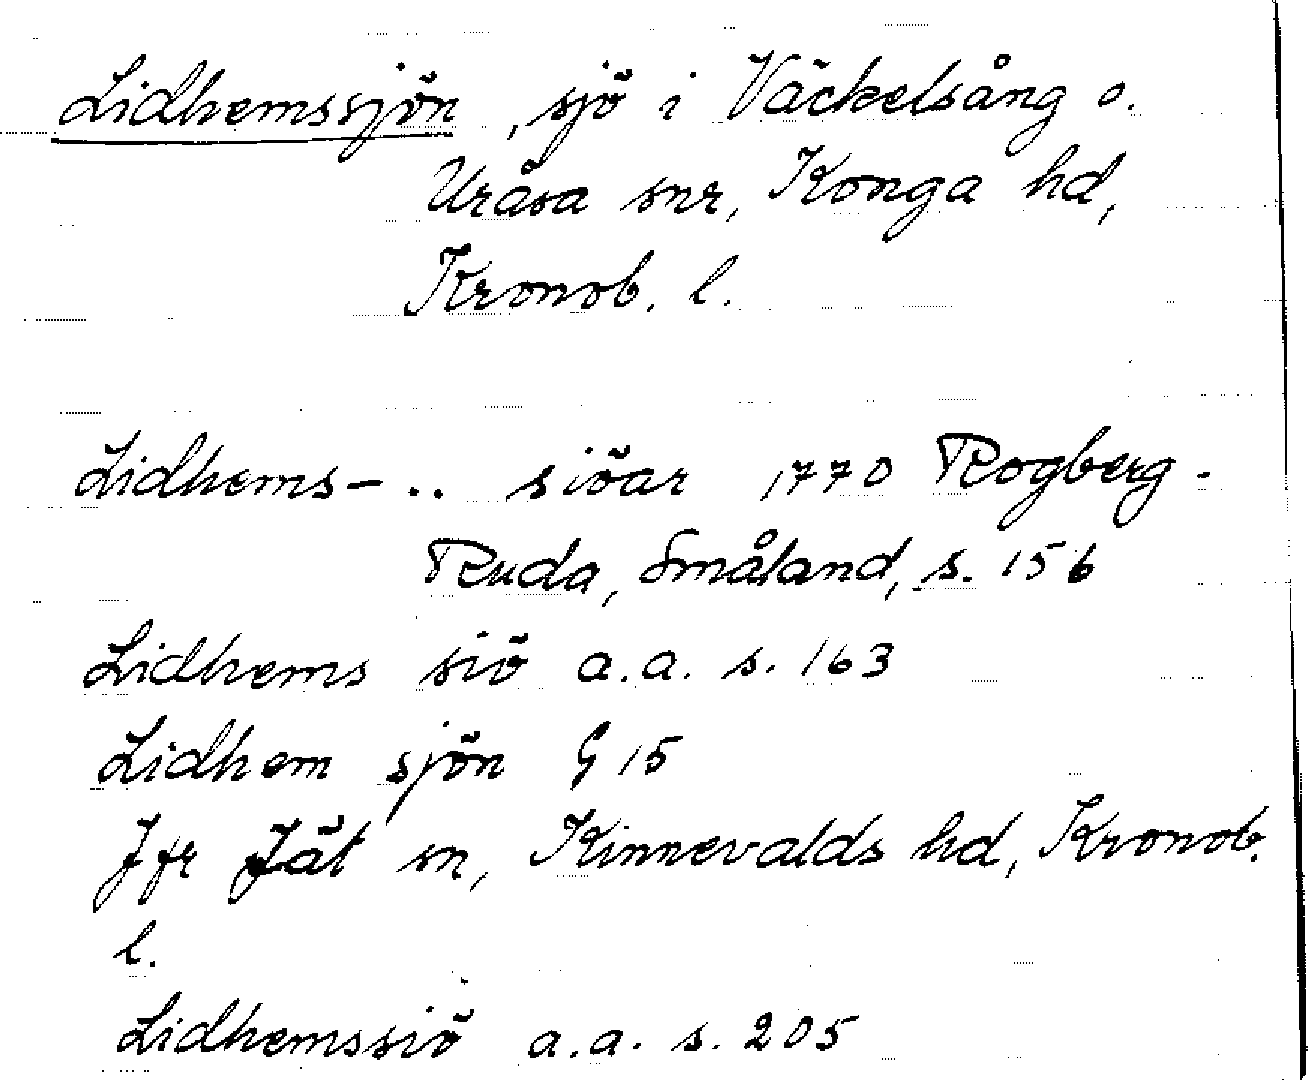 Lidhemssjön, sjö i Väckelsång o.
Uråsa snr, Konga hd,
Kronob. l.
Lidhems- .. siöar 1770 Rogberg-
Ruda, Småland, s. 156
Lidhems siö a.a. s. 163
Lidhem sjön G 15
Jfr Jät sn, Kinnevalds hd, Kronob.
l.
Lidhemssiö a.a. s. 205